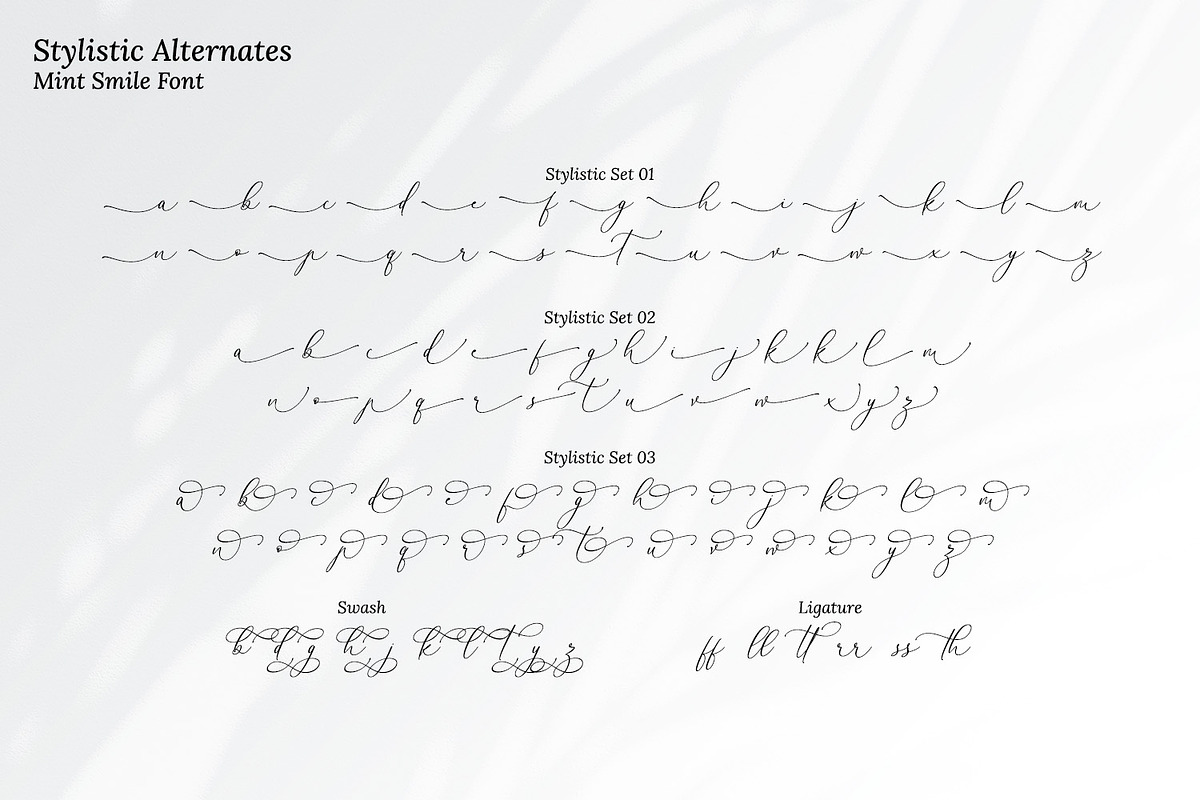 Stylistic Alternates
Mint Smile Font
Stylistic Set 01
a b c d e f g h i j k l m
n o p q r s t u v w x y z
Stylistic Set 02
a b c d e f g h i j k k l m
n o p q r s t u v w x y z
Stylistic Set 03
a b c d e f g h i j k l m
n o p q r s t u v w x y z
Swash
b d g h j k l t y z
Ligature
ff ll tt rr ss th